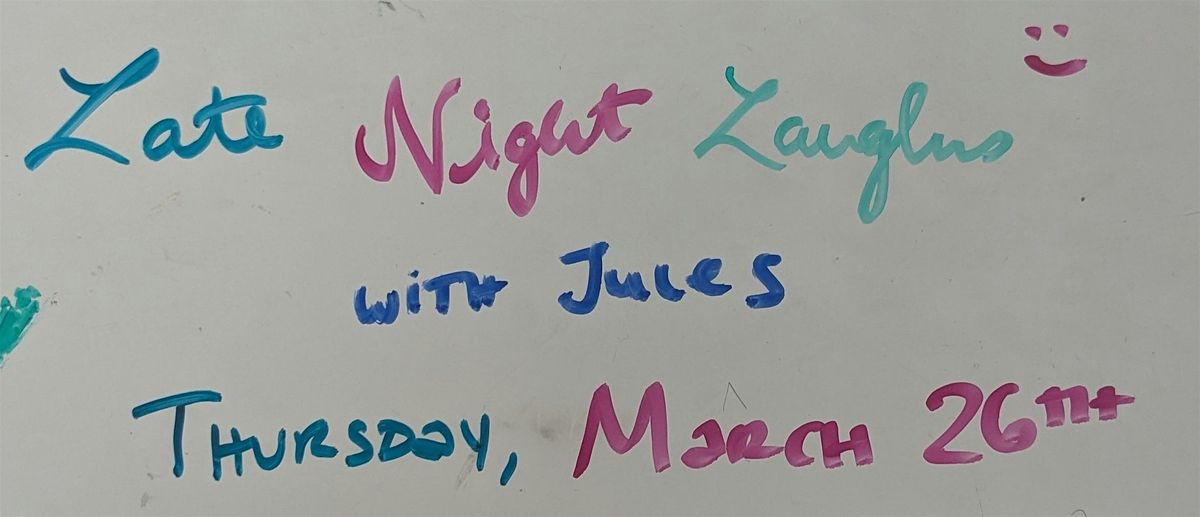 Late Night Laughs
with Jules
Thursday, March 26th